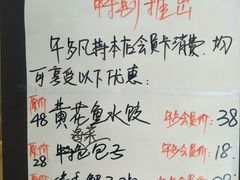 特别推出
年夕凡持本店会员卡消费,均
可享受以下优惠:
原价48 黄花鱼水饺 年夕会员价:38
原价28 特色包子 年夕会员价:18.